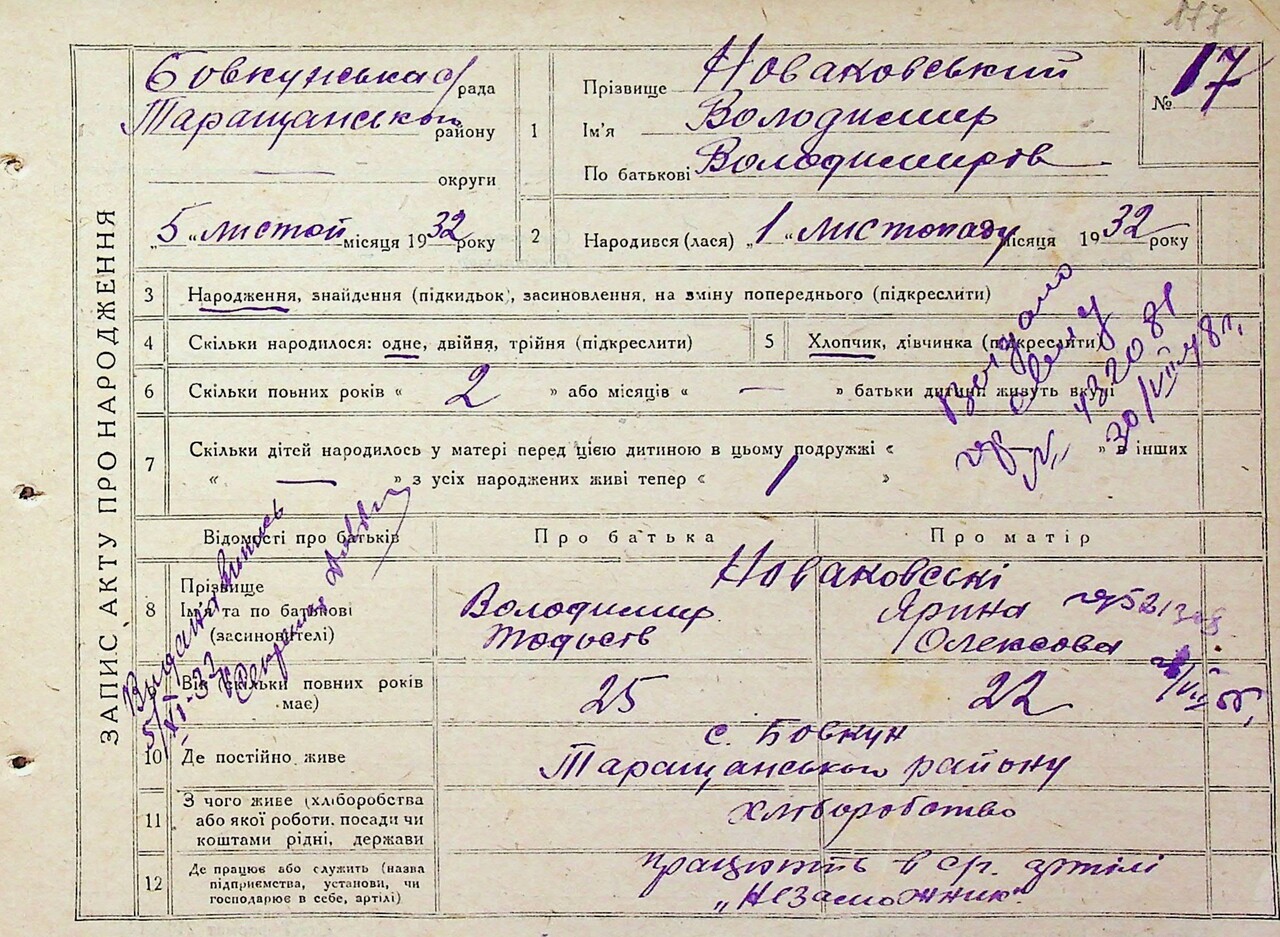 117
ЗАПИС АКТУ ПРО НАРОДЖЕННЯ
Бовкунська с/рада
Таращанського району
— округи
„5“ листоп місяця 1932 року
1 Прізвище Новаковський
Ім'я Володимир
По батькові Володимиров
№ 17
2 Народився (лася) „1“ листопаду місяця 1932 року
3 Народження, знайдення (підкидьок), засиновлення, на зміну попереднього (підкреслити)
4 Скільки народилося: одне, двійня, трійня (підкреслити)
5 Хлопчик, дівчинка (підкреслити)
6 Скільки повних років « 2 » або місяців « — » батьки дитини живуть вкупі
7 Скільки дітей народилось у матері перед цією дитиною в цьому подружжі « » в інших
« — » з усіх народжених живі тепер « 1 »
№ 432081
30/VII 48 г.
Відомості про батьків Про батька Про матір
8 Прізвище
Ім'я та по батькові
(засновителі)
Новаковські
Володимир Ярина
Тодосів Олексова
521308
Видана випись
5/XI-32
Вік (скільки повних років має) 25 22
10 Де постійно живе
с. Бовкун
Таращанського району
11 З чого живе (хліборобства
або якої роботи, посади чи
коштами рідні, держави
хліборобство
12 Де працює або служить (назва
підприємства, установи, чи
господарює в себе, артілі)
працюють в с/г. артілі
„Незаможник“